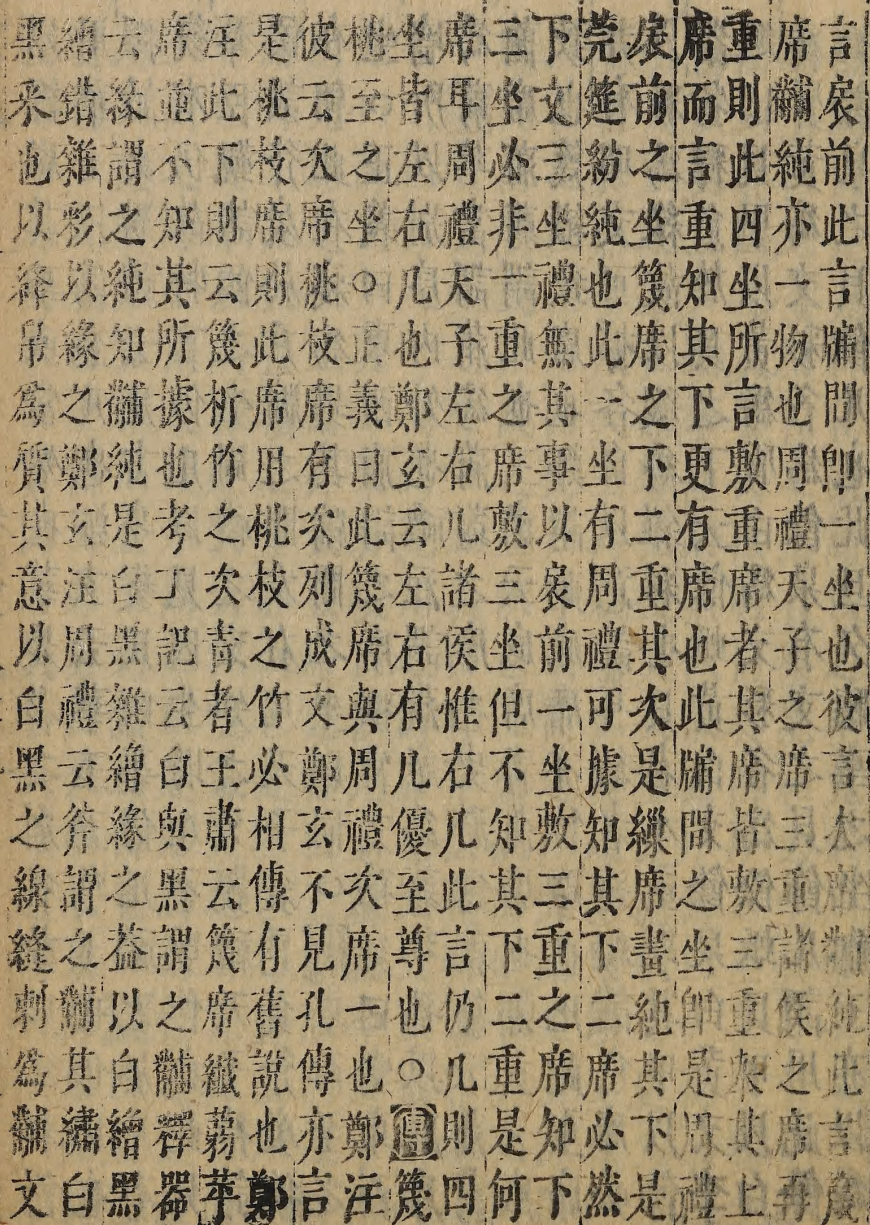 言扆前此言牖間即一坐也彼言次席黼純此言篾
席黼純亦一物也周禮天子之席三重諸侯之席再
重則此四坐所言敷重席者其席皆敷三重舉其上
席而言重知其下更有席也此牖間之坐即是周禮
扆前之坐篾席之下二重其次是繅席畫純其下是
莞筵紛純也此一坐有周禮可據知其下二席必然
下文三坐禮無其事以扆前一坐敷三重之席知下
三坐必非一重之席敷三坐但不知其下二重是何
席耳周禮天子左右几諸侯惟右几此言仍几則四
坐皆左右几也鄭玄云左右有几優至尊也○傳篾
桃至之坐○正義曰此篾席與周禮次席一也鄭注
彼云次席桃枝席有次列成文鄭玄不見孔傳亦言
是桃枝席則此席用桃枝之竹必相傳有舊說也鄭
注此下則云篾析竹之次青者王肅云篾席纖蒻苹
席並不知其所據也考工記云白與黑謂之黼釋器
云緣謂之純知黼純是白黑雜繒緣之葢以白繒黑
繒錯雜彩以緣之鄭玄注周禮云斧謂之黼其繡白
黑采也以絳帛爲質其意以白黑之線縫刺爲黼文